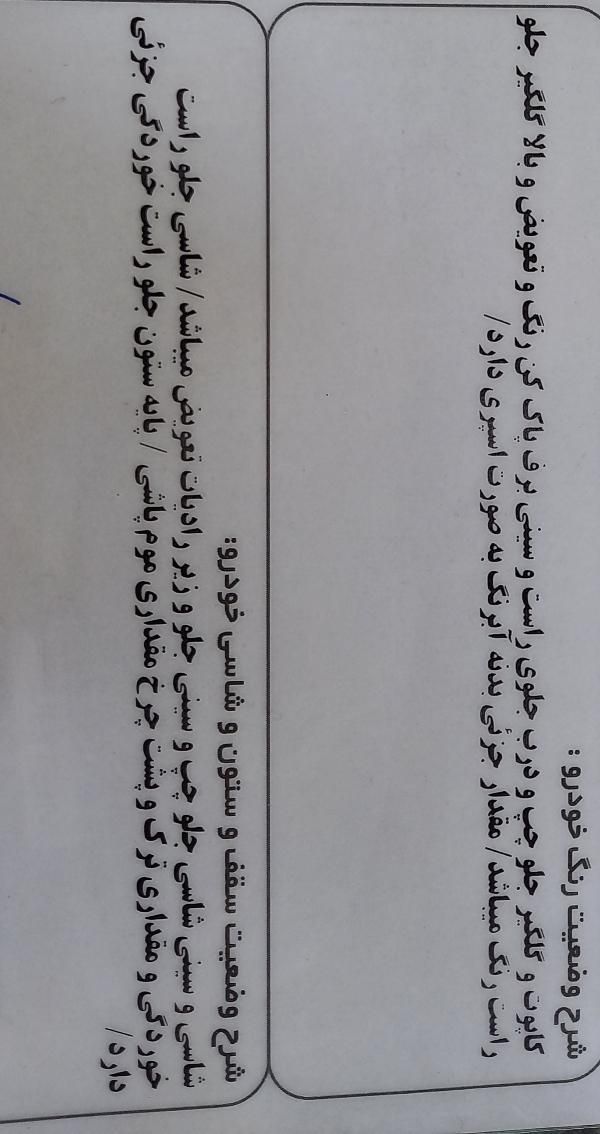 شرح وضعیت رنگ خودرو :
کاپوت و گلگیر جلو چپ و درب جلوی راست و سینی برف پاک کن رنگ و تعویض و بالا گلگیر جلو
راست رنگ میباشد/ مقدار جزئی بدنه آبرنگ به صورت اسپری دارد/
شرح وضعیت سقف و ستون و شاسی خودرو:
شاسی و سینی شاسی جلو چپ و سینی جلو و زیر رادیات تعویض میباشد/ شاسی جلو راست
خوردگی و مقداری ترک و پشت چرخ مقداری موم پاشی / پایه ستون جلو راست خوردگی جزئی
دارد/